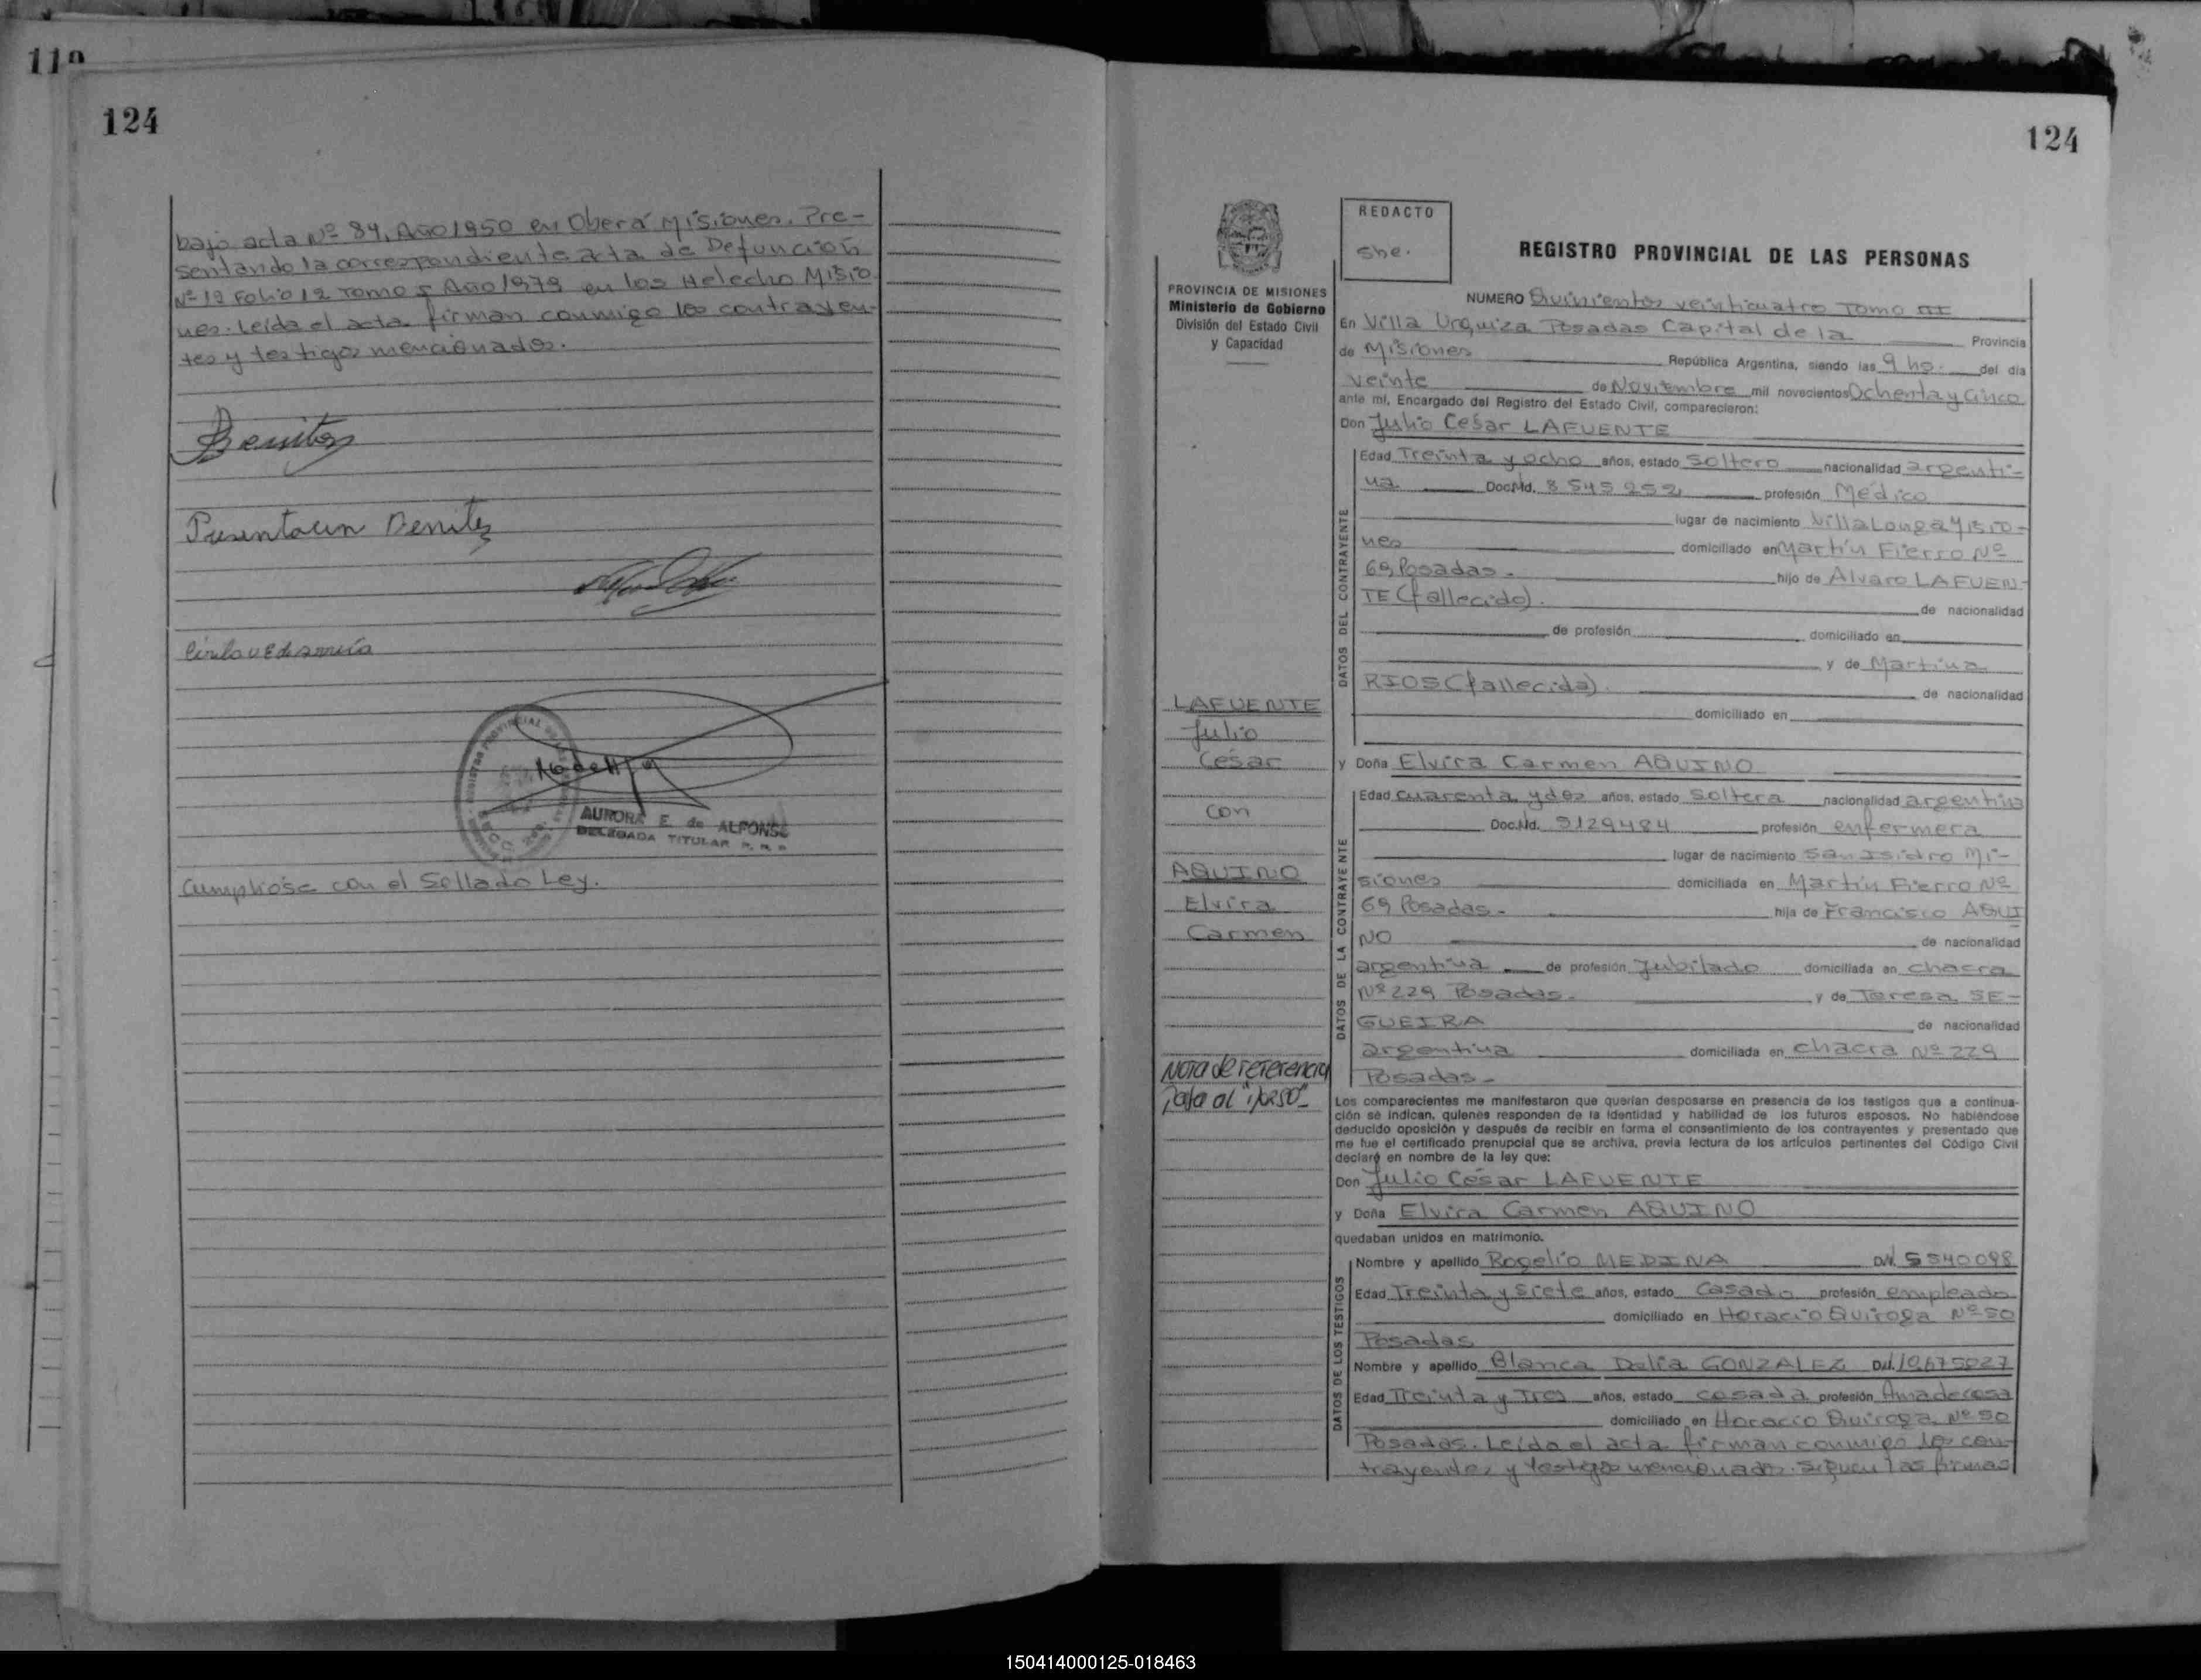 119
124
bajo acta Nº 84, Año 1950 en Oberá Misiones. Pre-
sentando la correspondiente acta de Defunción
Nº 12 Folio 12 Tomo Año 1979 en los Helecho Misio
nes. Leída el acta firman conmigo los contrayen-
tes y testigos mencionados.
Benitez
Benitez
AURORA E. de ALFONSO
DELEGADA TITULAR
Cumpliose con el Sellado Ley.
124
PROVINCIA DE MISIONES
Ministerio de Gobierno
División del Estado Civil
y Capacidad
REDACTO
She.
REGISTRO PROVINCIAL DE LAS PERSONAS
NUMERO Quinientos veinticuatro Tomo III
En Villa Urquiza Posadas Capital de la Provincia
de Misiones República Argentina, siendo las 9 hs. del día
veinte de Noviembre mil novecientos Ochenta y Cinco
ante mí, Encargado del Registro del Estado Civil, comparecieron:
Don Julio César LAFUENTE
DATOS DEL CONTRAYENTE
Edad Treinta y ocho años, estado soltero nacionalidad argenti-
na Doc.Nd. 8545252 profesión Médico
lugar de nacimiento Villa Longa Misio-
nes domiciliado en Martín Fierro Nº
69 Posadas. hijo de Alvaro LAFUEN-
TE (fallecido). de nacionalidad
de profesión domiciliado en
y de Martina
RIOS (fallecida). de nacionalidad
domiciliado en
LAFUENTE
Julio
César
con
AQUINO
Elvira
Carmen
Nota de referencia
pasa al
y Doña Elvira Carmen AQUINO
DATOS DE LA CONTRAYENTE
Edad cuarenta y dos años, estado soltera nacionalidad argentina
Doc.Nd. 5129484 profesión enfermera
lugar de nacimiento San Isidro Mi-
siones domiciliada en Martín Fierro Nº
69 Posadas. hija de Francisco AQUI
NO de nacionalidad
argentina de profesión Jubilado domiciliada en chacra
Nº 229 Posadas. y de Teresa SE-
GUEIRA de nacionalidad
argentina domiciliada en chacra Nº 229
Posadas.
Los comparecientes me manifestaron que querían desposarse en presencia de los testigos que a continua-
ción se indican, quienes responden de la identidad y habilidad de los futuros esposos. No habiéndose
deducido oposición y después de recibir en forma el consentimiento de los contrayentes y presentado que
me fue el certificado prenupcial que se archiva, previa lectura de los artículos pertinentes del Código Civil
declaré en nombre de la ley que:
Don Julio César LAFUENTE
y Doña Elvira Carmen AQUINO
quedaban unidos en matrimonio.
DATOS DE LOS TESTIGOS
Nombre y apellido Rogelio MEDINA D.N. 5540098
Edad Treinta y siete años, estado Casado profesión empleado
domiciliado en Horacio Quiroga Nº 50
Posadas
Nombre y apellido Blanca Delia GONZALEZ D.N. 10.675027
Edad Treinta y Tres años, estado casada profesión Amadecasa
domiciliado en Horacio Quiroga Nº 50
Posadas. Leída el acta firman conmigo los con-
trayentes y testigos mencionados. Siguen las firmas
150414000125-018463